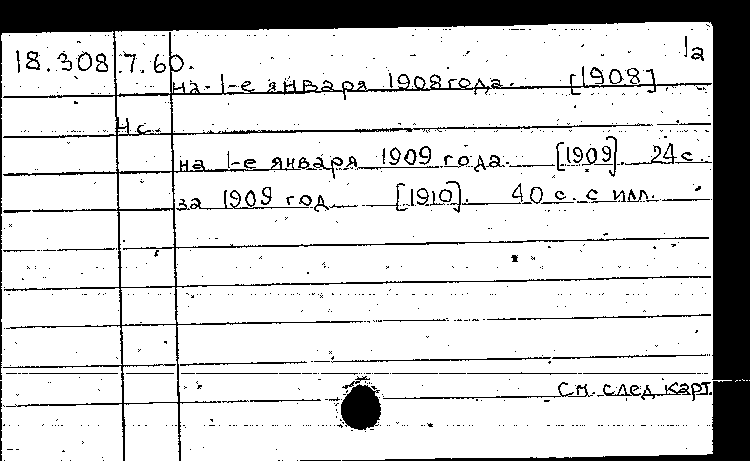 1а
18.308.7.60.
на 1-е января 1908 года. [1908]
Нс.
на 1-е января 1909 года. [1909]. 24 с.
за 1909 год [1910]. 40 с. с илл.
См. след. карт.